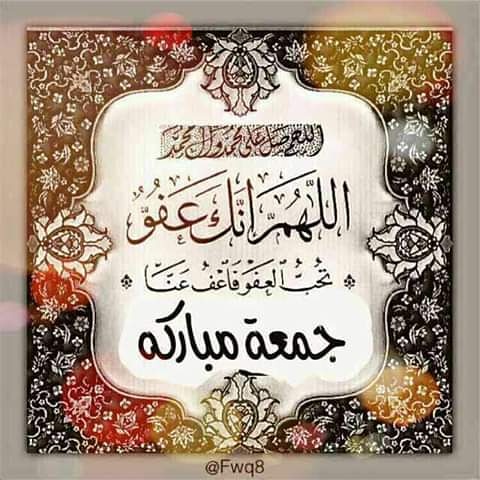 اللهم صل على محمد وال محمد
اللَّهُمَّ إِنَّكَ عَفُوٌّ
تُحِبُّ العَفْوَ فَاعْفُ عَنَّا
جمعة مباركه
@Fwq8